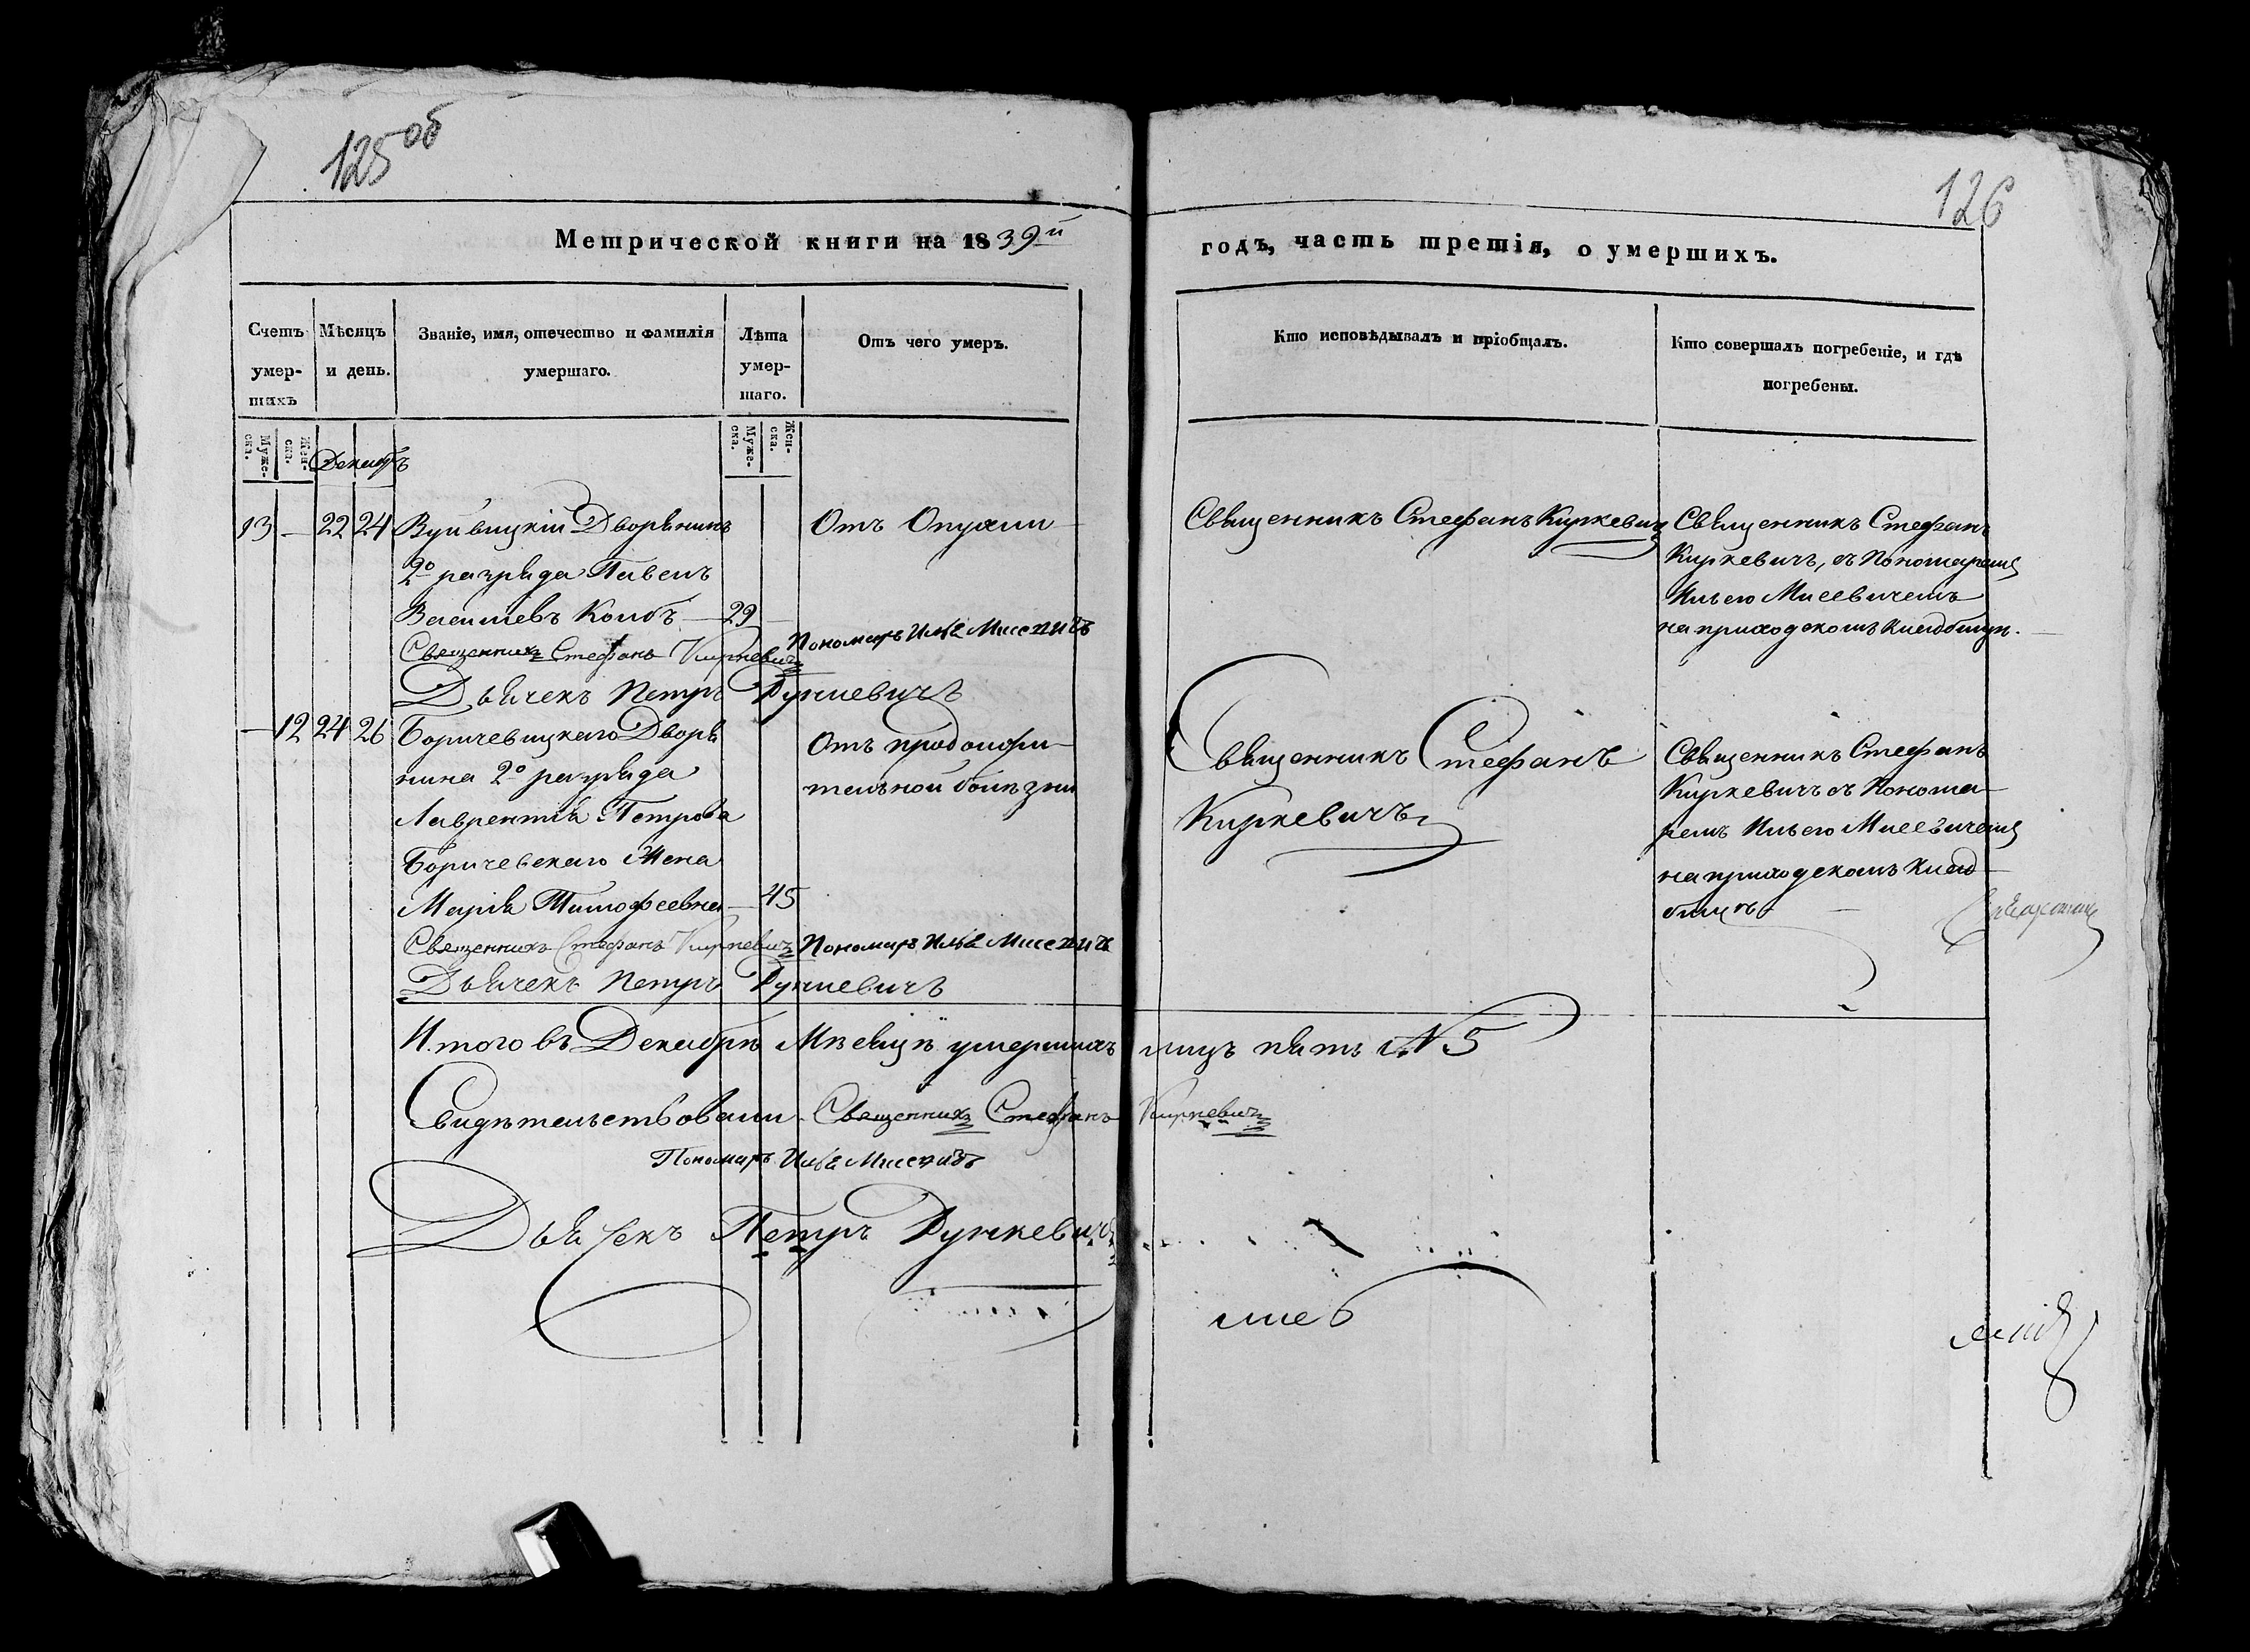 125об
126
Метрической книги на 1839й
годъ, часть третія, о умершихъ.
Счетъ умер-шихъ
Мѣсяцъ и день.
Званіе, имя, отечество и фамилія умершаго.
Лѣта умер-шаго.
Отъ чего умеръ.
Кто исповѣдывалъ и пріобщалъ.
Кто совершалъ погребеніе, и гдѣ погребены.
Муже-ска.
Жен-ска.
Декабрь
Муже-ска.
Жен-ска.
13 — 22 24
Вуйвицкій Дворянинъ
2о разряда Павелъ
Васильевъ Колбъ — 29 —
Отъ Опухли
Священникъ Стефанъ Киркевич
Священникъ Стефанъ
Киркевичъ, съ Пономаремъ
Ильею Мисевичемъ
на приходскомъ кладбищѣ.
Священникъ Стефанъ Киркевичъ
Пономаръ Илья Мисевичъ
Дьячекъ Петръ Ручкевичъ
— 12 24 26
Боричевицкаго Дворя
нина 2о разряда
Лаврентія Петрова
Боричевскаго Жена
Марія Тимофеевна — 45
Отъ продолжи-
тельной болѣзни
Священникъ Стефанъ
Киркевичъ
Священникъ Стефанъ
Киркевичъ съ Понома-
ремъ Ильею Мисевичемъ
на приходскомъ клад-
бищѣ
Священникъ Стефанъ Киркевичъ Пономаръ Илья Мисевичъ
Дьячекъ Петръ Ручкевичъ
Итого въ Декабрѣ Мѣсяцѣ умершихъ лицъ пять № 5
Свидѣтельствовали Священникъ Стефанъ Киркевичъ
Пономаръ Илья Мисевичъ
Дьячекъ Петръ Ручкевичъ